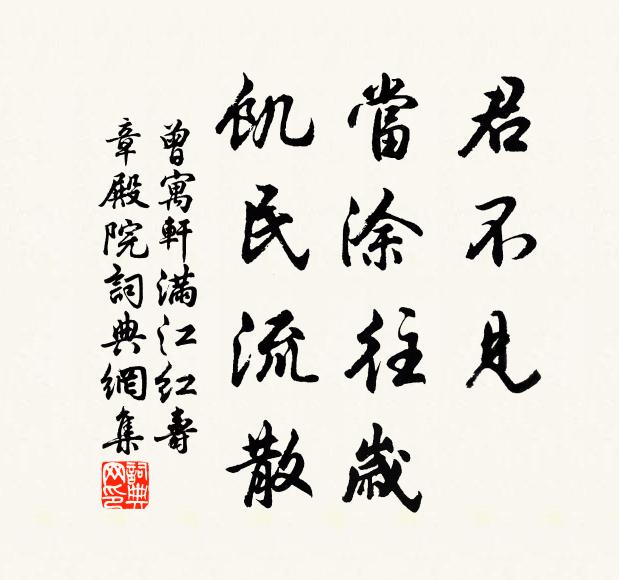 君不見
當涂往歲
飢民流散
曾寓軒滿江紅壽
章殿院詞典網集
詞典网印